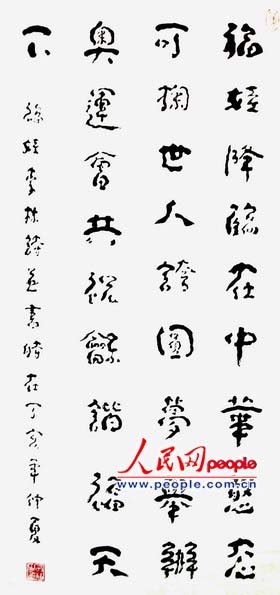 福娃降臨在中華憨态
可掬世人誇圓夢舉辦
奥運會共祝龢諧福天
下
福娃 李林 並書時在丁亥年仲夏
人民网 people
www.people.com.cn